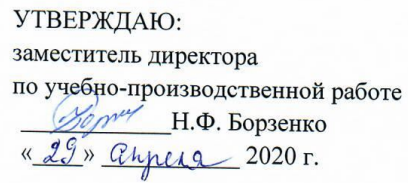 УТВЕРЖДАЮ:
заместитель директора
по учебно-производственной работе
Н.Ф. Борзенко
«29» апреля 2020 г.